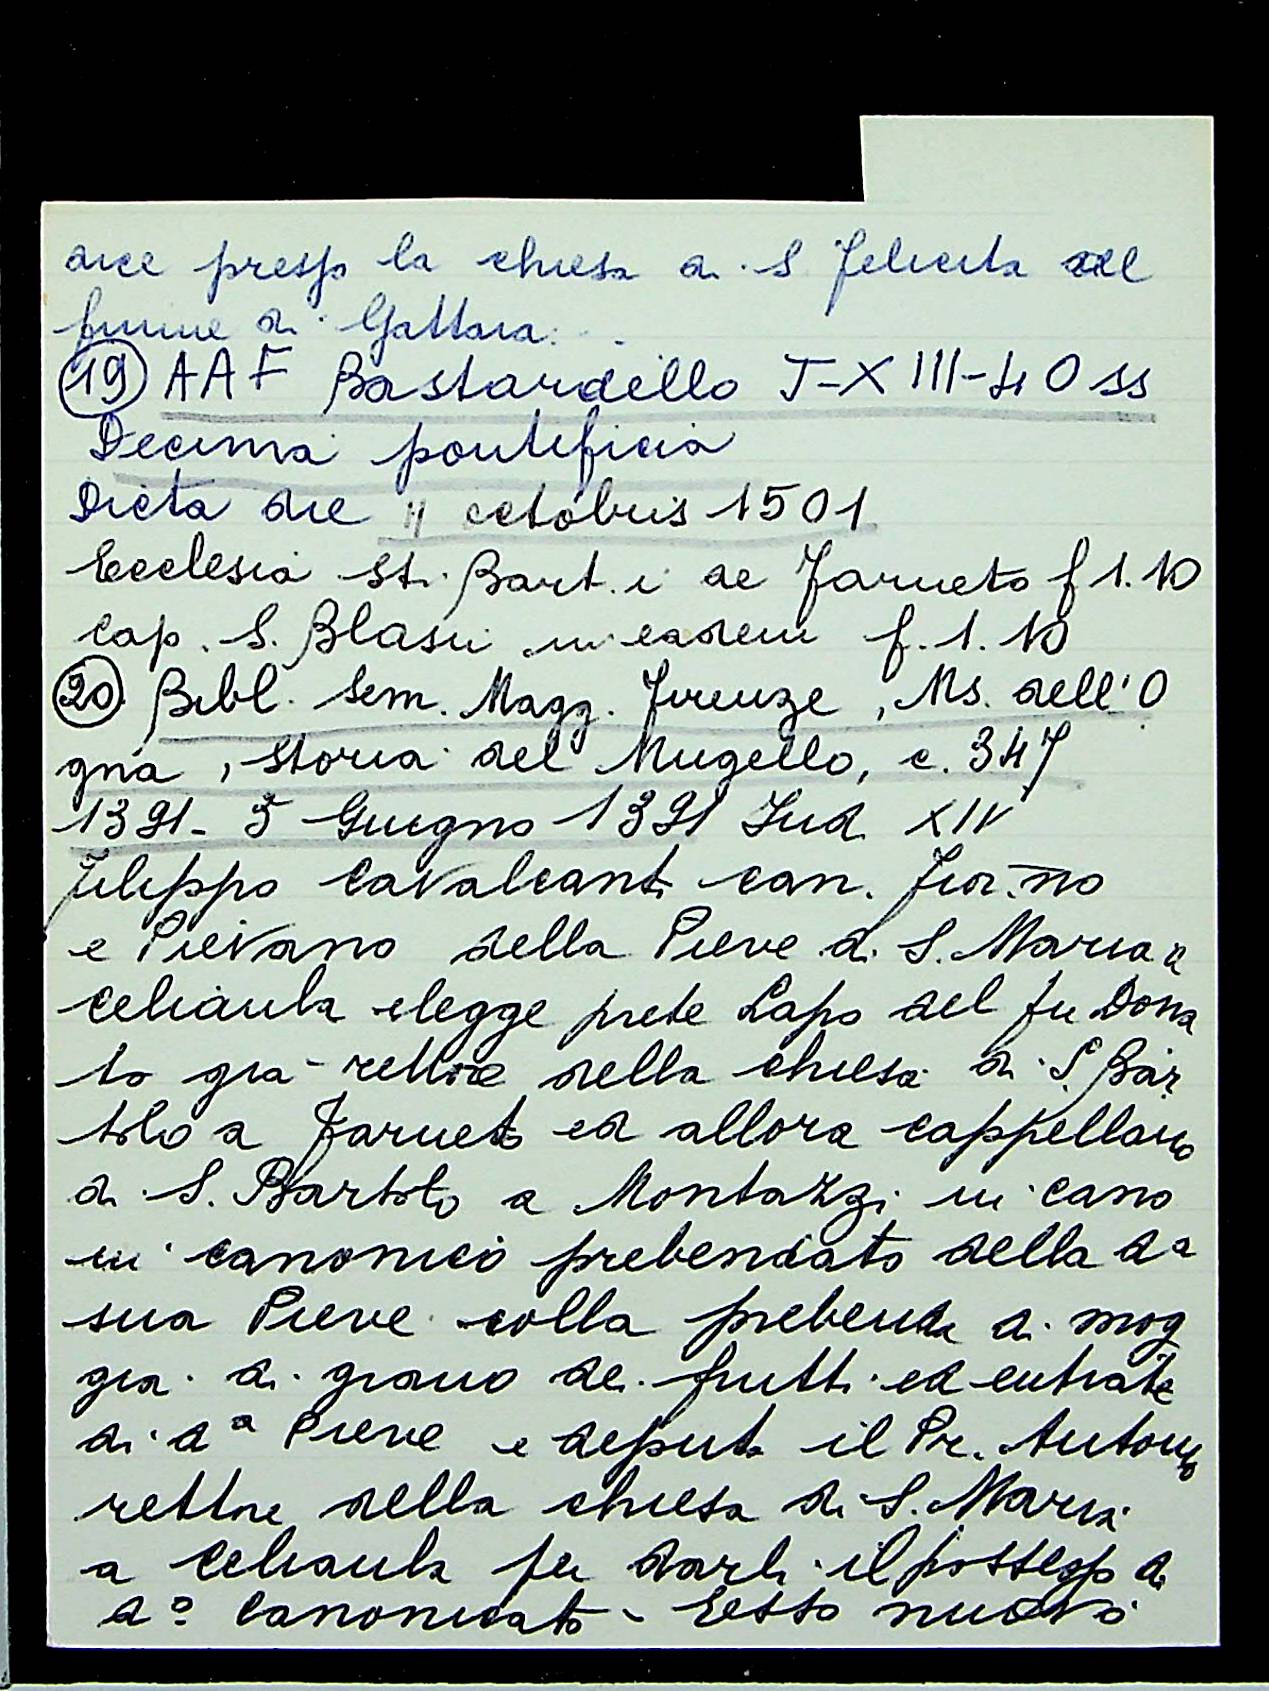 dice presso la chiesa di S Felicita al
fiume di Gattaia.
(19) AAF Bastardello T-XIII-40 ss
Decima pontificia
Dicta die 11 octobris 1501
Ecclesia Sti. Bart.i de Farneto f 1.10
Cap. S. Blasii in eadem f. 1. 10
(20) Bibl. Sem. Magg. Firenze, Ms. dell'O
gna, Storia del Mugello, c. 347
1391 - 5 Giugno 1391 Ind XIV
Filippo Cavalcanti can. Fior.no
e Pievano della Pieve di S. Maria a
Celiaula elegge prete Lapo del fu Dona
to già rettore della chiesa di S. Bar
tolo a Farneto ed allora cappellano
di S. Bartolo a Montazzi in cano
in canonico prebendato della da
sua Pieve colla prebenda di mog
gia di grano dei frutti ed entrate
di da Pieve e deputa il Pr. Antonio
rettore della chiesa di S. Maria
a Celiaula per darli il possesso di
do canonicato - Esso nuovo